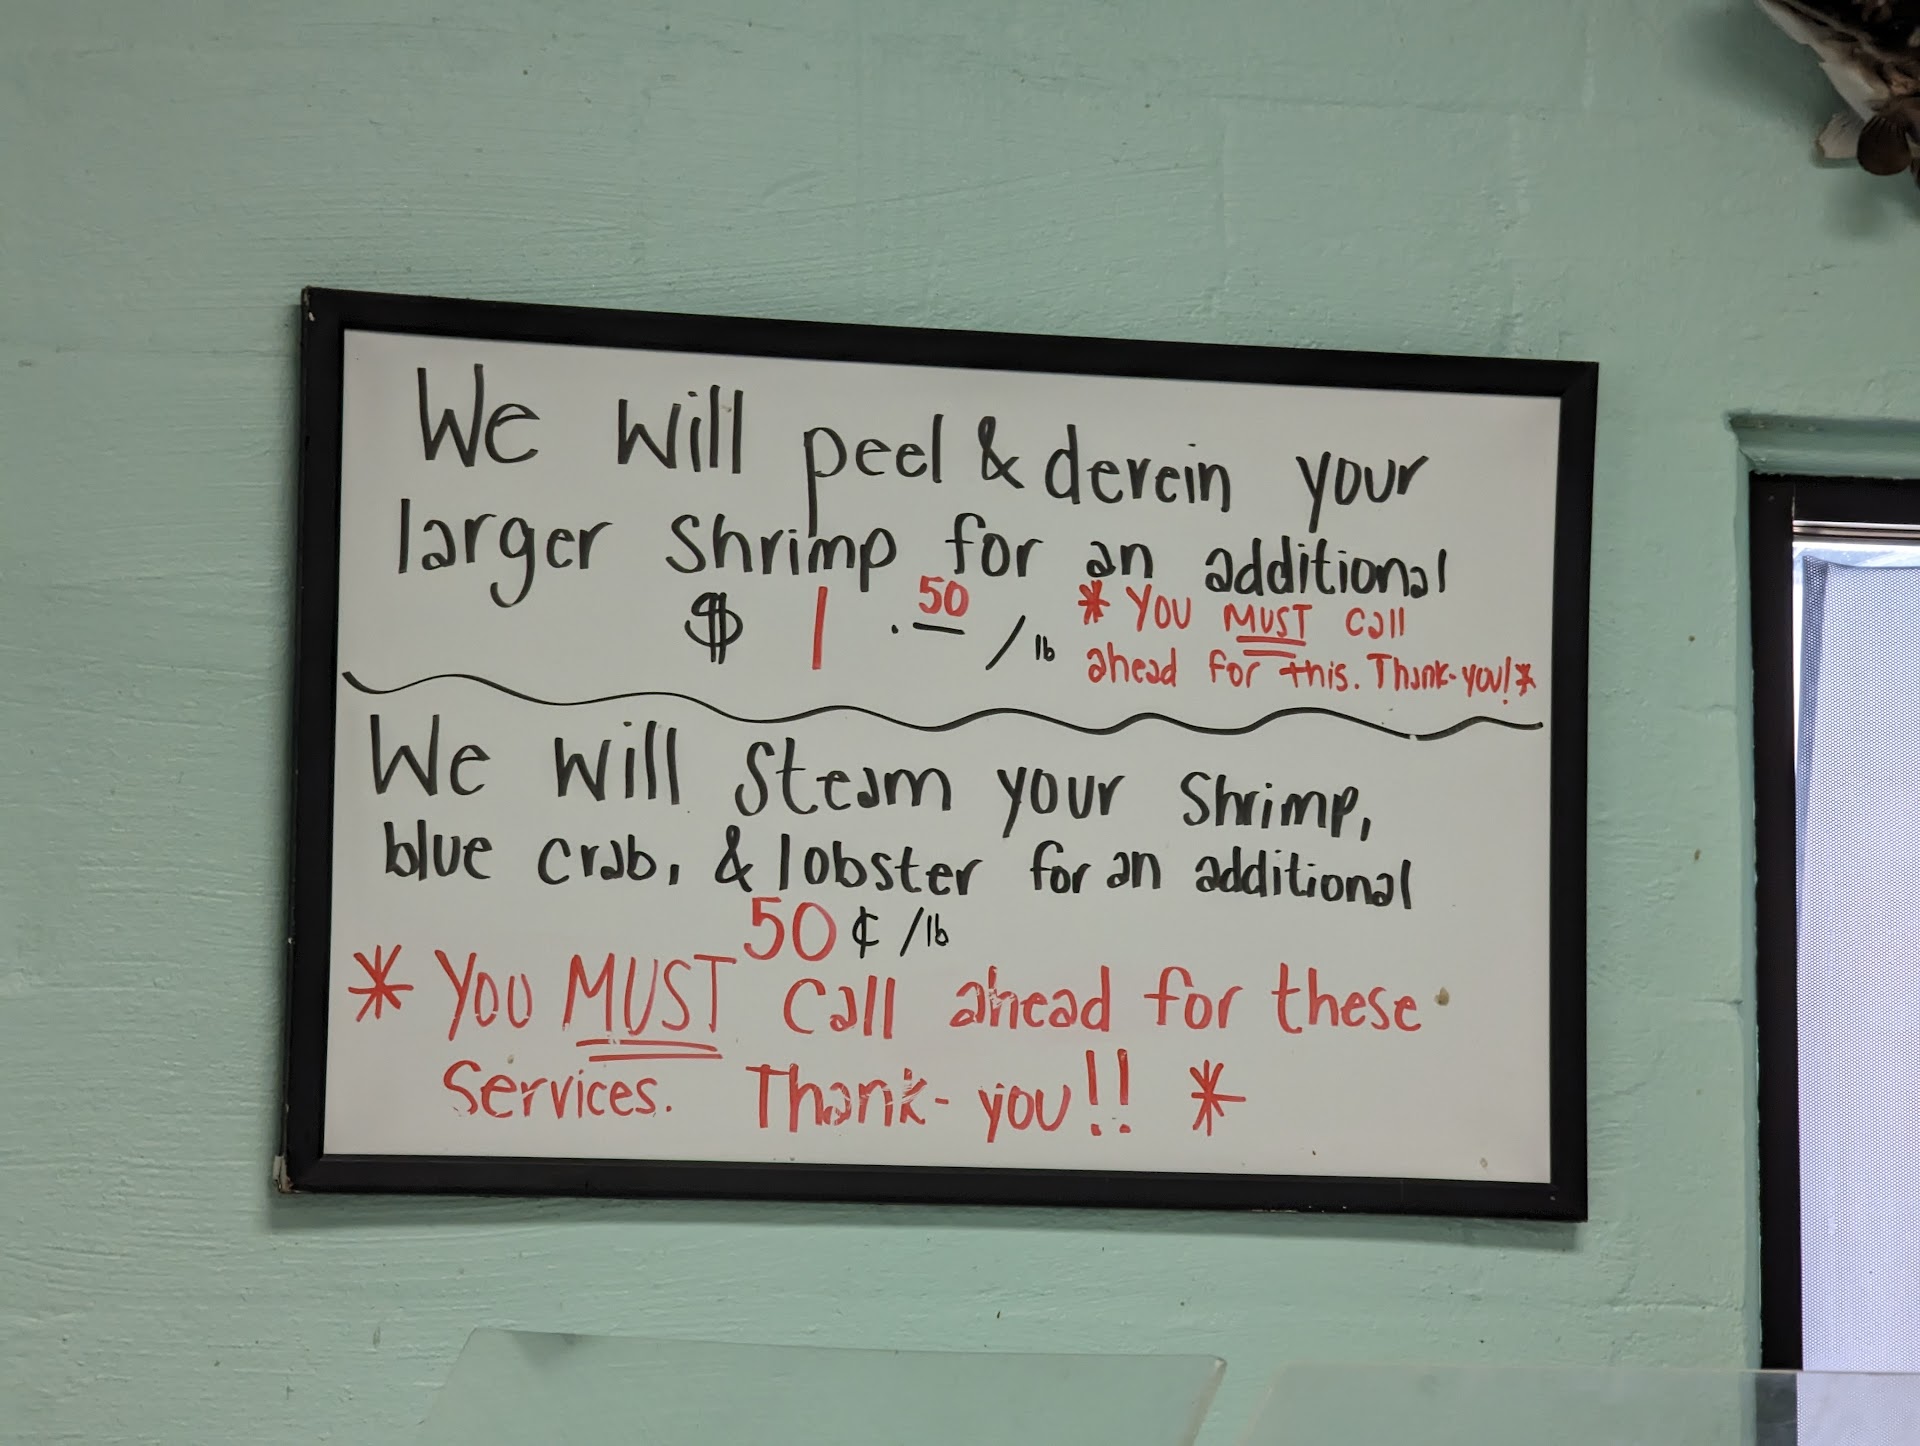 We will peel & devein your
larger shrimp for an additional
$ 1.50 /lb
* You MUST call
ahead for this. Thank-you! *
We will steam your shrimp,
blue crab, & lobster for an additional
50¢ /lb
* You MUST call ahead for these
services. Thank-you!! *